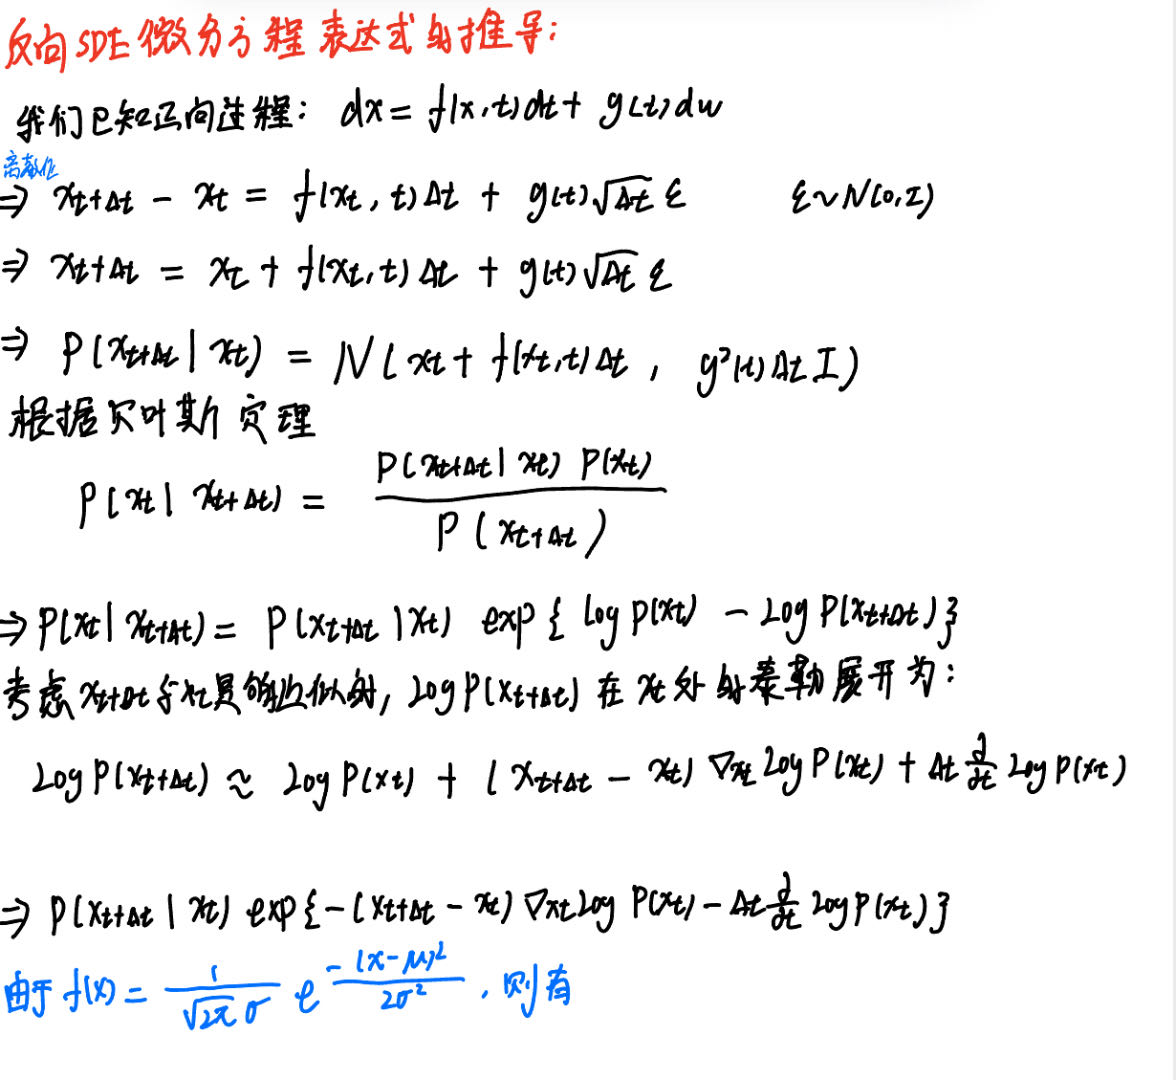 反向SDE微分方程表达式的推导:
我们已知正向过程: dx = f(x,t)dt + g(t)dw
离散化
⇒ x_{t+Δt} - x_t = f(x_t, t)Δt + g(t)√Δt ε    ε~N(0,I)
⇒ x_{t+Δt} = x_t + f(x_t,t)Δt + g(t)√Δt ε
⇒ P(x_{t+Δt} | x_t) = N(x_t + f(x_t,t)Δt , g²(t)Δt I)
根据贝叶斯定理
P(x_t | x_{t+Δt}) = \frac{P(x_{t+Δt} | x_t) P(x_t)}{P(x_{t+Δt})}
⇒ P(x_t | x_{t+Δt}) = P(x_{t+Δt} | x_t) exp{log P(x_t) - log P(x_{t+Δt})}
考虑x_{t+Δt}与x_t是够近似的, log P(x_{t+Δt}) 在 x_t 处的泰勒展开为:
log P(x_{t+Δt}) ≈ log P(x_t) + (x_{t+Δt} - x_t) ∇_{x_t} log P(x_t) + Δt \frac{∂}{∂t} log P(x_t)
⇒ P(x_{t+Δt} | x_t) exp{-(x_{t+Δt} - x_t) ∇_{x_t} log P(x_t) - Δt \frac{∂}{∂t} log P(x_t)}
由于 f(x) = \frac{1}{√2π σ} e^{-\frac{(x-μ)²}{2σ²}}, 则有